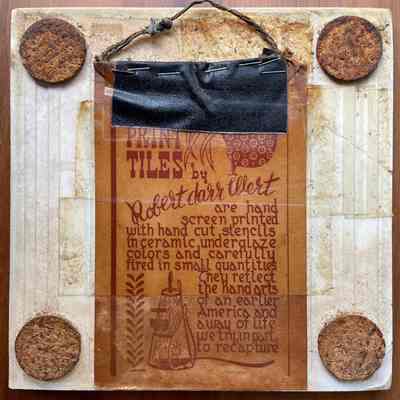 PRINT
TILES by
Robert Darr Wert
are hand
screen printed
with hand cut stencils
in ceramic underglaze
colors and carefully
fired in small quantities
They reflect
the hand arts
of an earlier
America and
a way of life
we try in part
to recapture